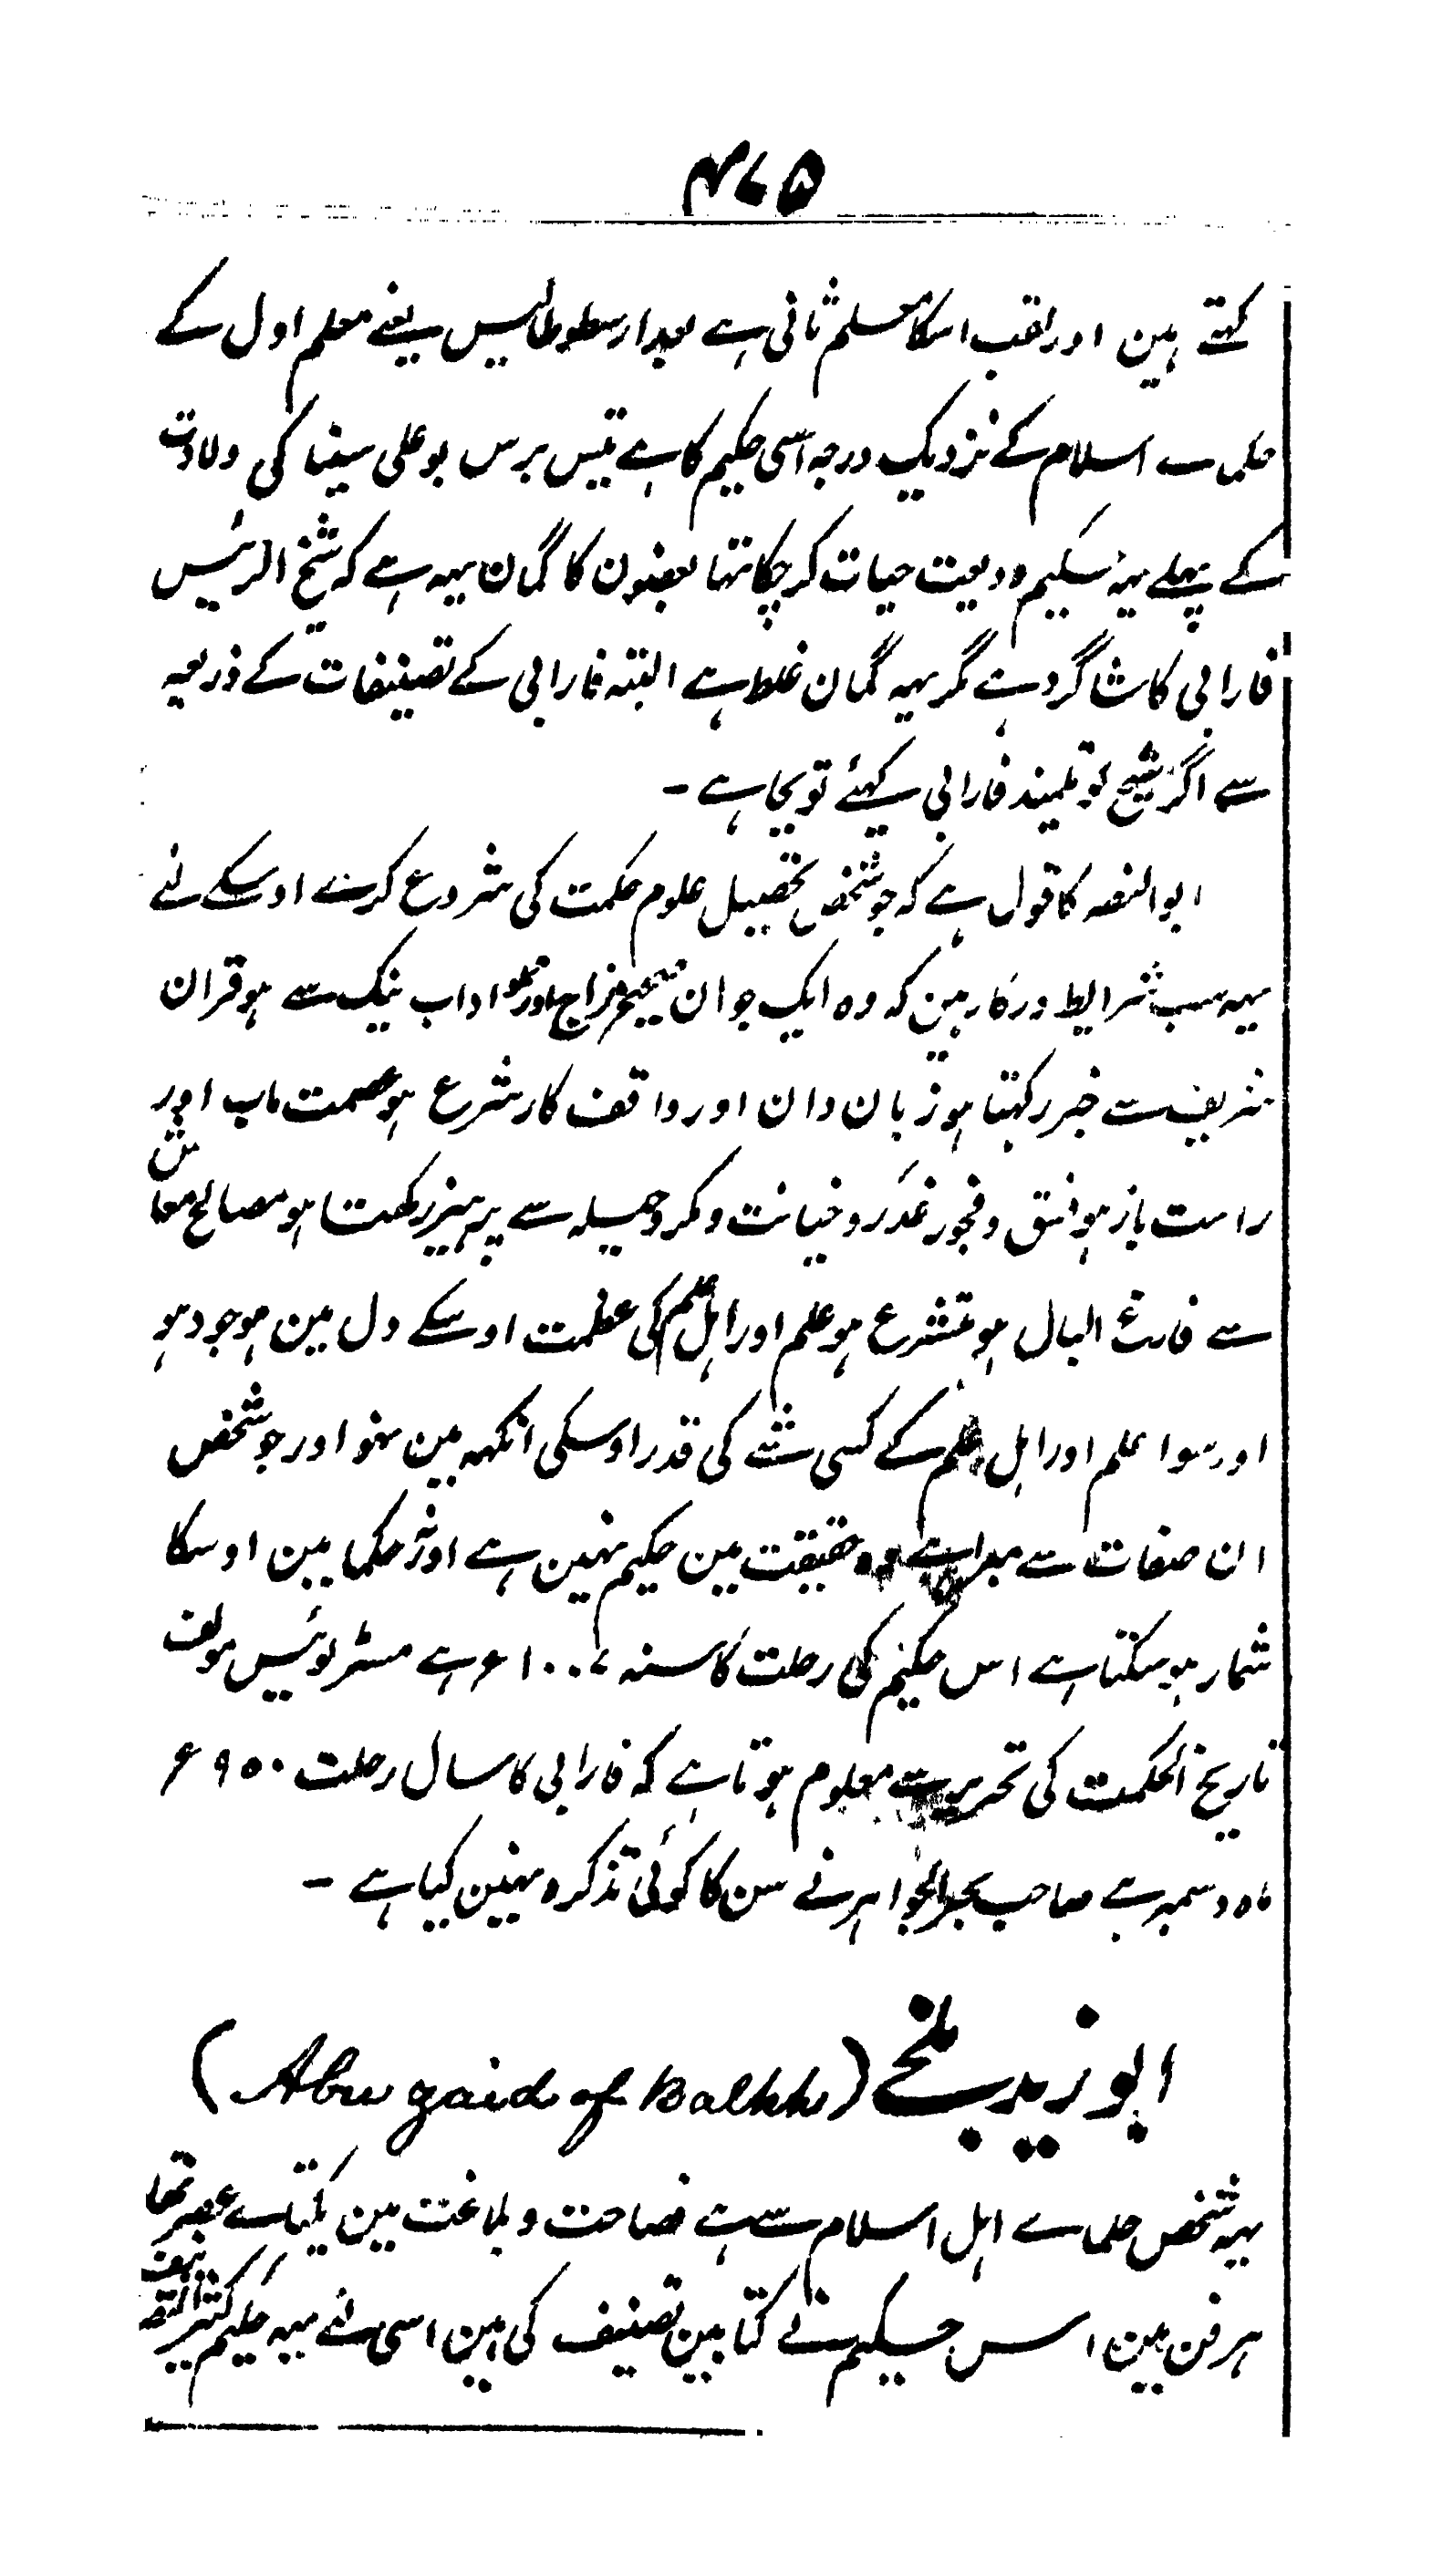 ۴۷۵
کہتے ہین اور لقب اسکا معلم ثانی ہے بعد ارسطوطالیس یعنے معلم اول کے
حکماے اسلام کے نزدیک درجہ اسی حکیم کا ہے تیس برس بو علی سینا کی ولادت
کے پہلے یہہ حکیم ودیعت حیات کرچکا تہا بعضون کا گمان یہہ ہے کہ شیخ الرئیس
فارابی کا شاگرد ہے مگر یہہ گمان غلط ہے البتہ فارابی کے تصنیفات کے ذریعہ
سے اگر شیخ کو تلمیذ فارابی کہئے تو بجا ہے -
ابوالنصر کا قول ہے کہ جو شخص تحصیل علوم حکمت کی شروع کرے اوسکے لئے
یہہ سب شرایط درکار ہین کہ وہ ایک جوان صحیح مزاج اور اداب نیک سے ہو قران
شریف سے خبر رکہتا ہو زبان دان اور واقف کار شرع ہو عصمت ماب اور
راست باز ہو فسق و فجور غدر و خیانت و مکر و حیلہ سے پرہیز رکھتا ہو مصالح معاش
سے فارغ البال ہو متشرع ہو علم اور اہل علم کی عظمت اوسکے دل مین موجود ہو
اور سوا علم اور اہل علم کے کسی شے کی قدر اوسکی انکہہ مین نہو اور جو شخص
ان صفات سے مبرا ہے وہ حقیقت مین حکیم نہین ہے اور نہ حکما مین اوسکا
شمار ہو سکتا ہے اس حکیم کی رحلت کا سنہ ۱۰۰۷ء ہے مسٹر لوئیس مولف
تاریخ الحکمت کی تحریر سے معلوم ہوتا ہے کہ فارابی کا سال رحلت ۹۵۰ء
ماہ دسمبر ہے صاحب بحر الجواہر نے سن کا کوئی تذکرہ نہین کیا ہے -
ابو زید بلخے (Abu zaid of Balkh)
یہہ شخص حکماے اہل اسلام سے ہے فصاحت و بلاغت مین یکتاے عصر تہا
ہر فن مین اس حکیم نے کتابین تصنیف کی ہین اسی لئے یہہ حکیم کثیر التصانیف